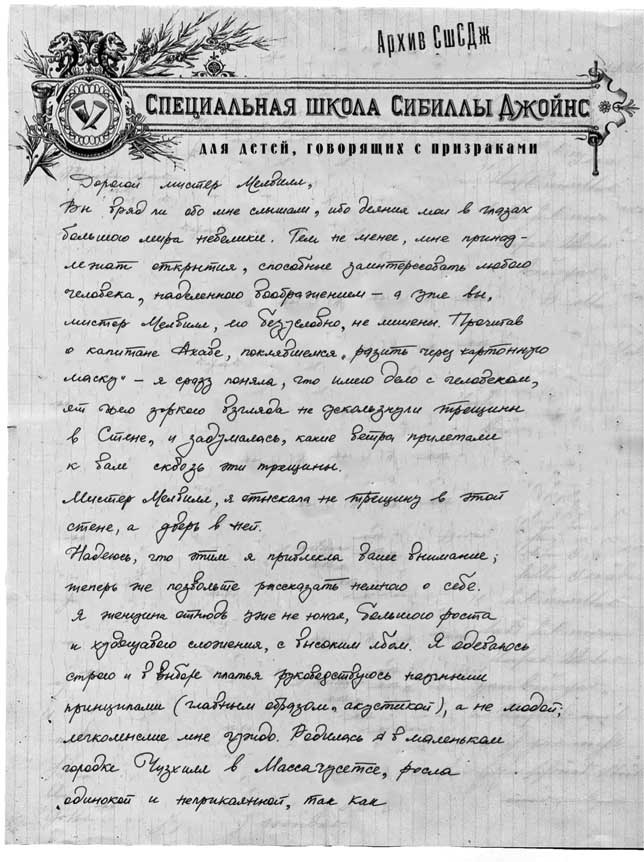 Архив СшСДж
Специальная школа Сибиллы Джойнс
для детей, говорящих с призраками
Дорогой мистер Мелвилл,
Вы вряд ли обо мне слышали, ибо деяния мои в глазах
большого мира невелики. Тем не менее, мне принад-
лежат открытия, способные заинтересовать любого
человека, наделенного воображением – а уже вы,
мистер Мелвилл, его безусловно, не лишены. Прочитав
о капитане Ахабе, поклявшемся „разить через картонную
маску" – я сразу поняла, что имею дело с человеком,
от чьего зоркого взгляда не ускользнули трещины
в Стене, и задумалась, какие ветра прилетали
к вам сквозь эти трещины.
Мистер Мелвилл, я отыскала не трещину в этой
стене, а дверь в ней.
Надеюсь, что этим я привлекла ваше внимание;
теперь же позвольте рассказать немного о себе.
Я женщина отнюдь уже не юная, большого роста
и худощавого сложения, с высоким лбом. Я одеваюсь
строго и в выборе платья руководствуюсь научными
принципами (главным образом, акустикой), а не модой;
легкомыслие мне чуждо. Родилась я в маленьком
городке Чузхилл в Массачусетсе, росла
одинокой и неприкаянной, так как